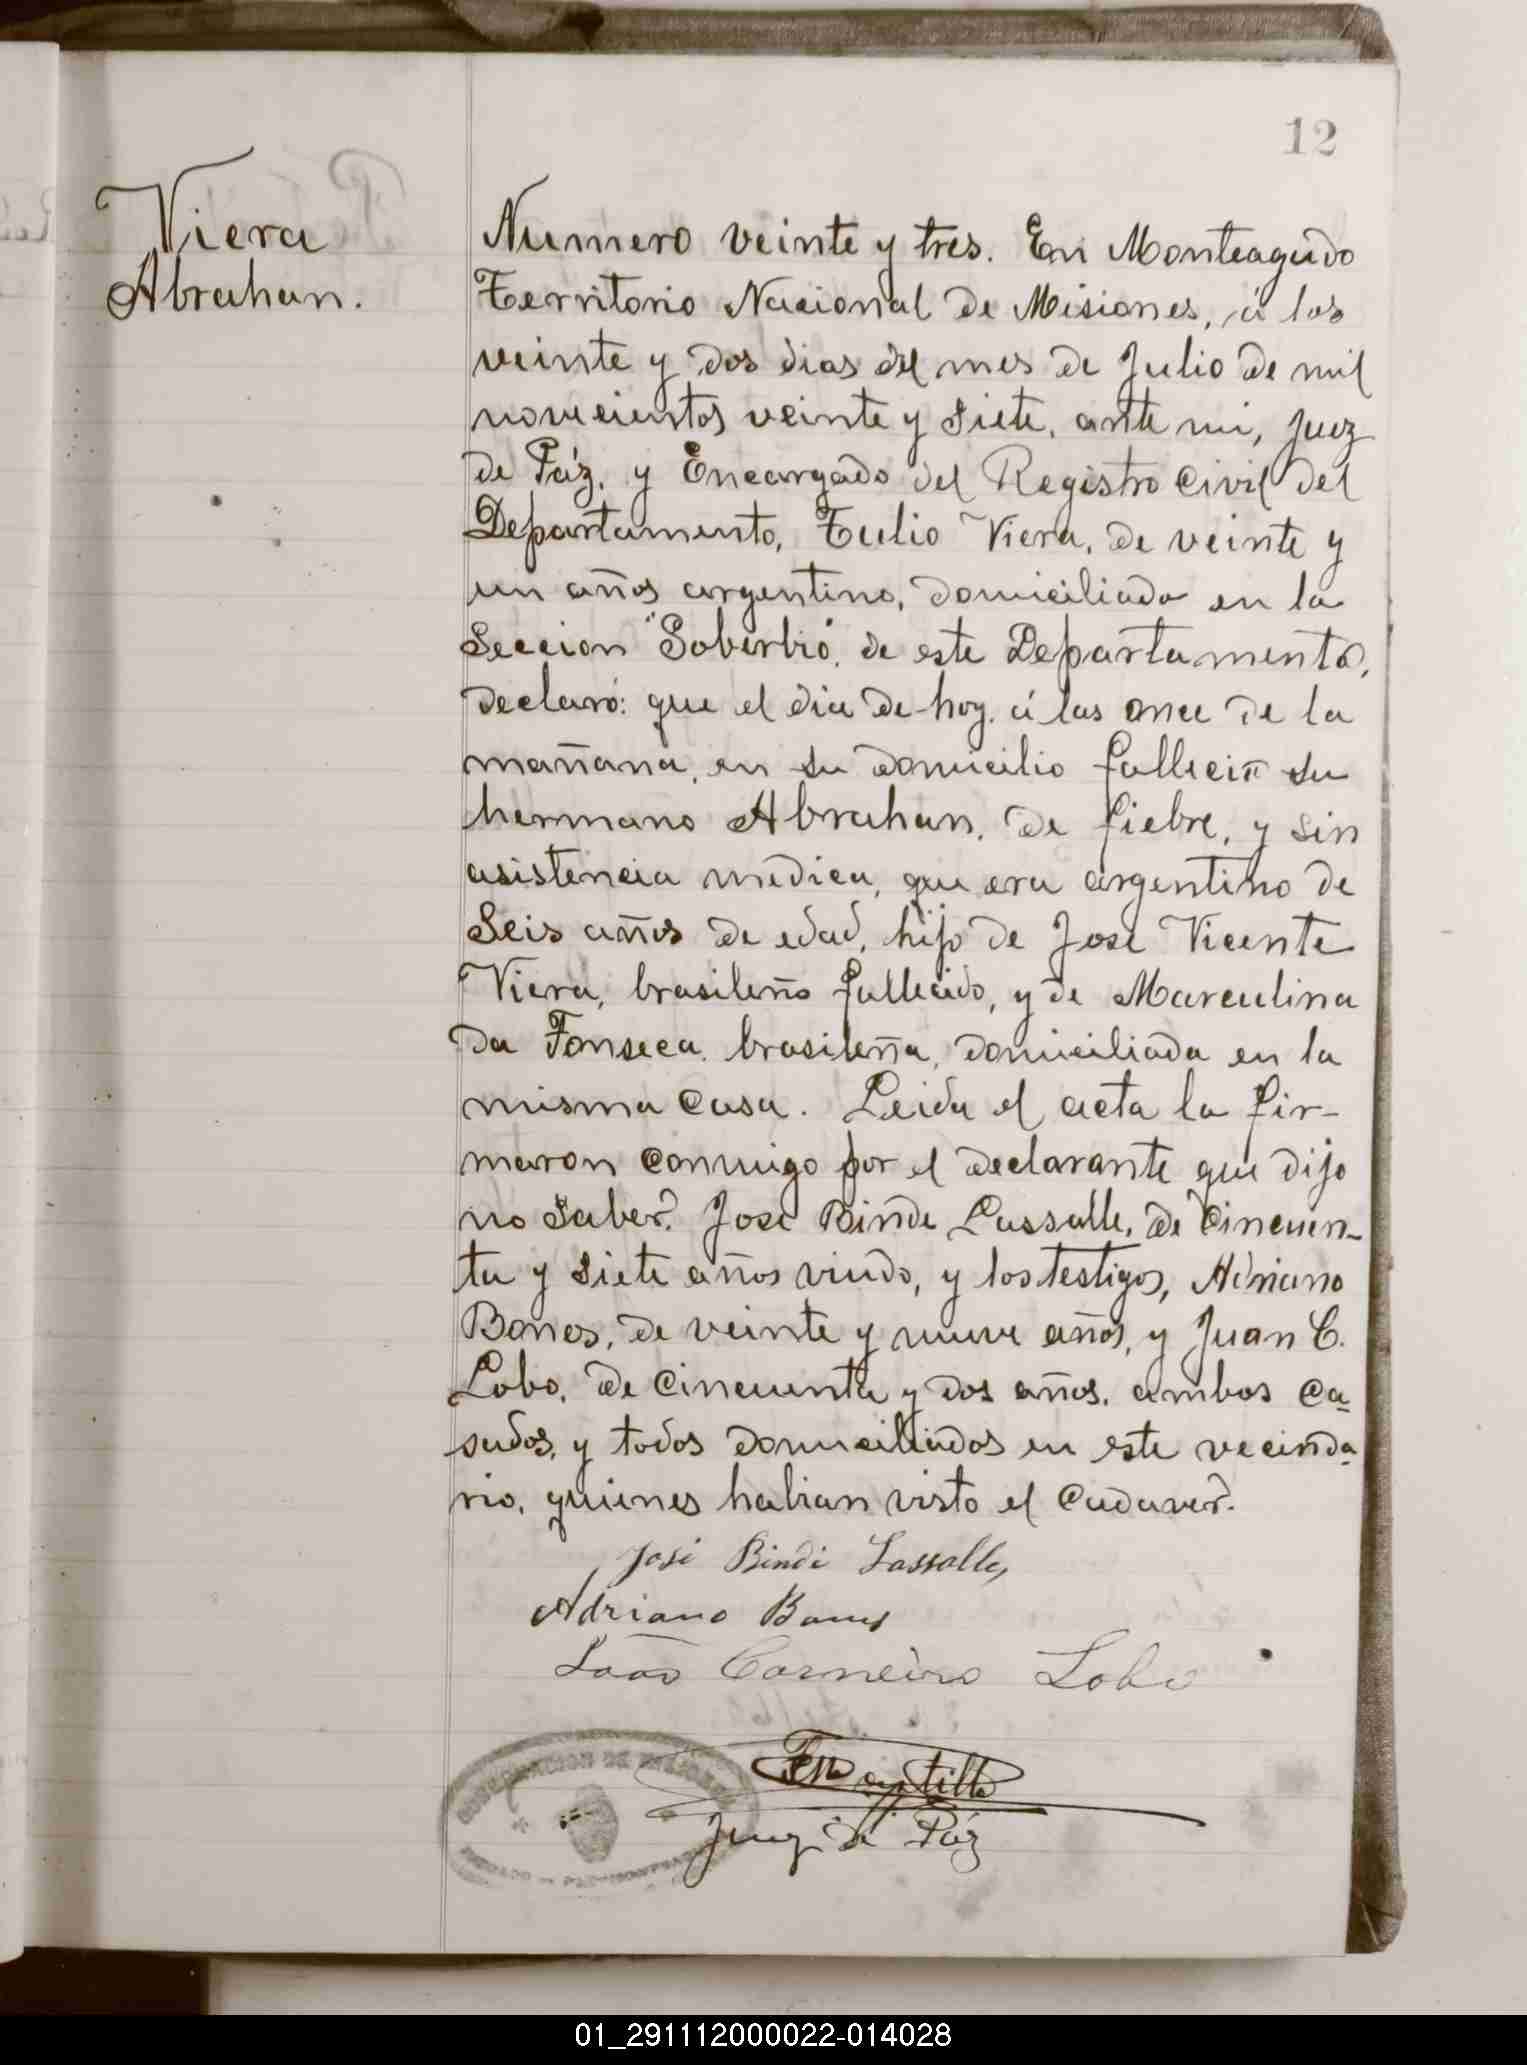 12
Viera
Abrahan.
Numero veinte y tres. En Monteagudo
Territorio Nacional de Misiones, á los
veinte y dos dias del mes de Julio de mil
novecientos veinte y siete, ante mi, Juez
de Páz, y Encargado del Registro Civil del
Departamento, Tulio Viera, de veinte y
un años argentino, domiciliado en la
Seccion "Soberbio", de este Departamento,
declaró: que el dia de hoy, á las once de la
mañana, en su domicilio falleció su
hermano Abrahan, de fiebre, y sin
asistencia medica, que era argentino de
Seis años de edad, hijo de Jose Vicente
Viera, brasileño fallecido, y de Marculina
da Fonseca, brasileña, domiciliada en la
misma casa. Leida el acta la fir-
maron conmigo por el declarante que dijo
no saber. Jose Binde Lassalle, de Cincuen-
ta y siete años viudo, y los testigos, Adriano
Bones, de veinte y nueve años, y Juan C.
Lobo, de cincuenta y dos años, ambos ca-
sados, y todos domiciliados en este vecinda-
rio, quienes habian visto el cadaver.
José Bindi Lassalle,
Adriano Bones
João Carneiro Lobo
Juez de Páz
01_291112000022-014028